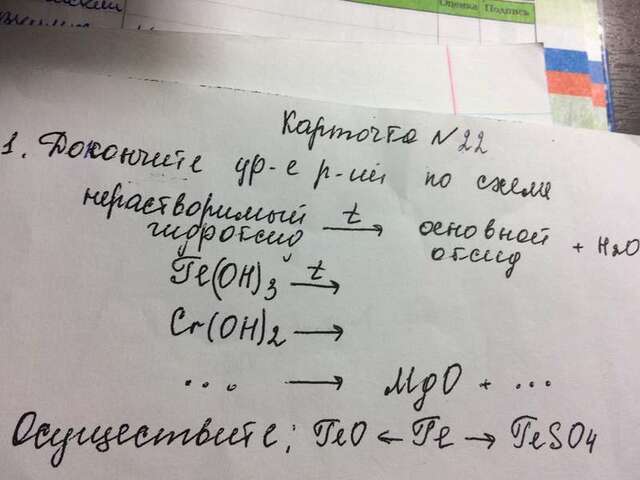 Карточка N 22
1. Докончите ур-е р-ий по схеме
нерастворимый гидроксид t→ основной оксид + H2O
Fe(OH)3 t→
Cr(OH)2 →
... → MgO + ...
Осуществите: FeO ← Fe → FeSO4
Оценка Подпись